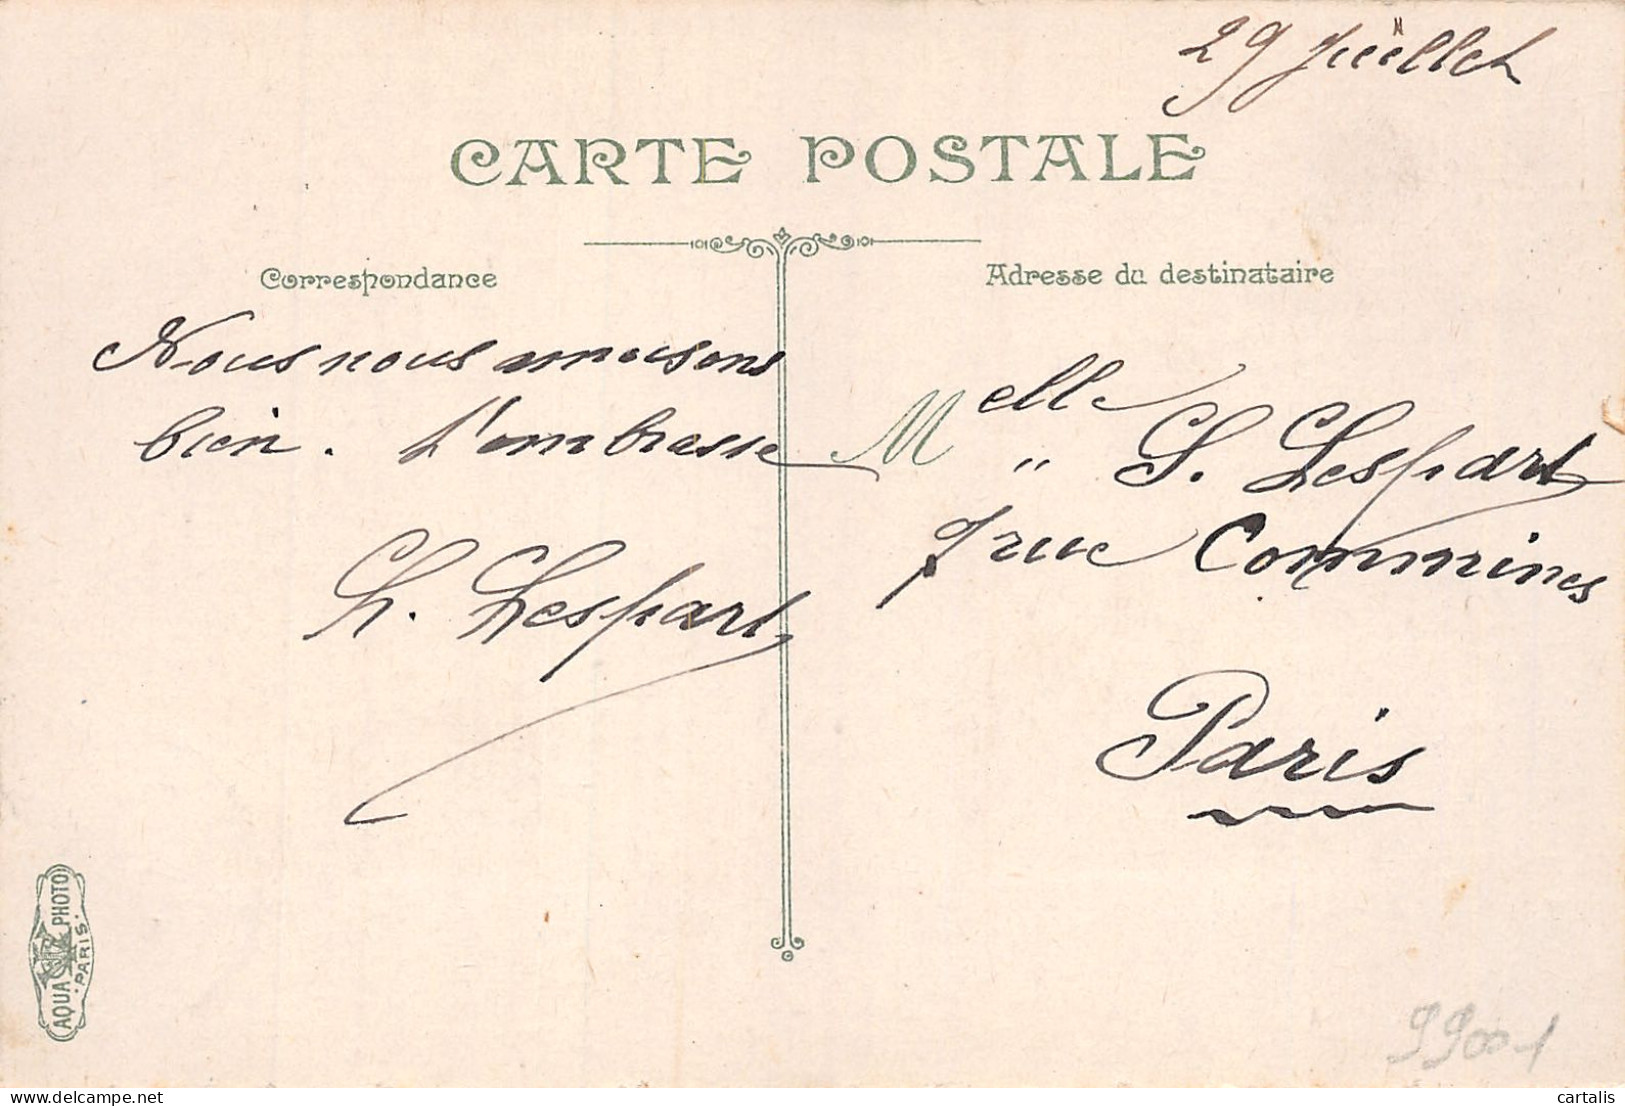 29 Juillet
CARTE POSTALE
Correspondance
Adresse du destinataire
Nous nous amusons
bien. t'embrasse
L. Lespart
Melle
" S. Lespart
7 rue Commines
Paris
AQUA PHOTO
PARIS
delcampe.net
cartalis